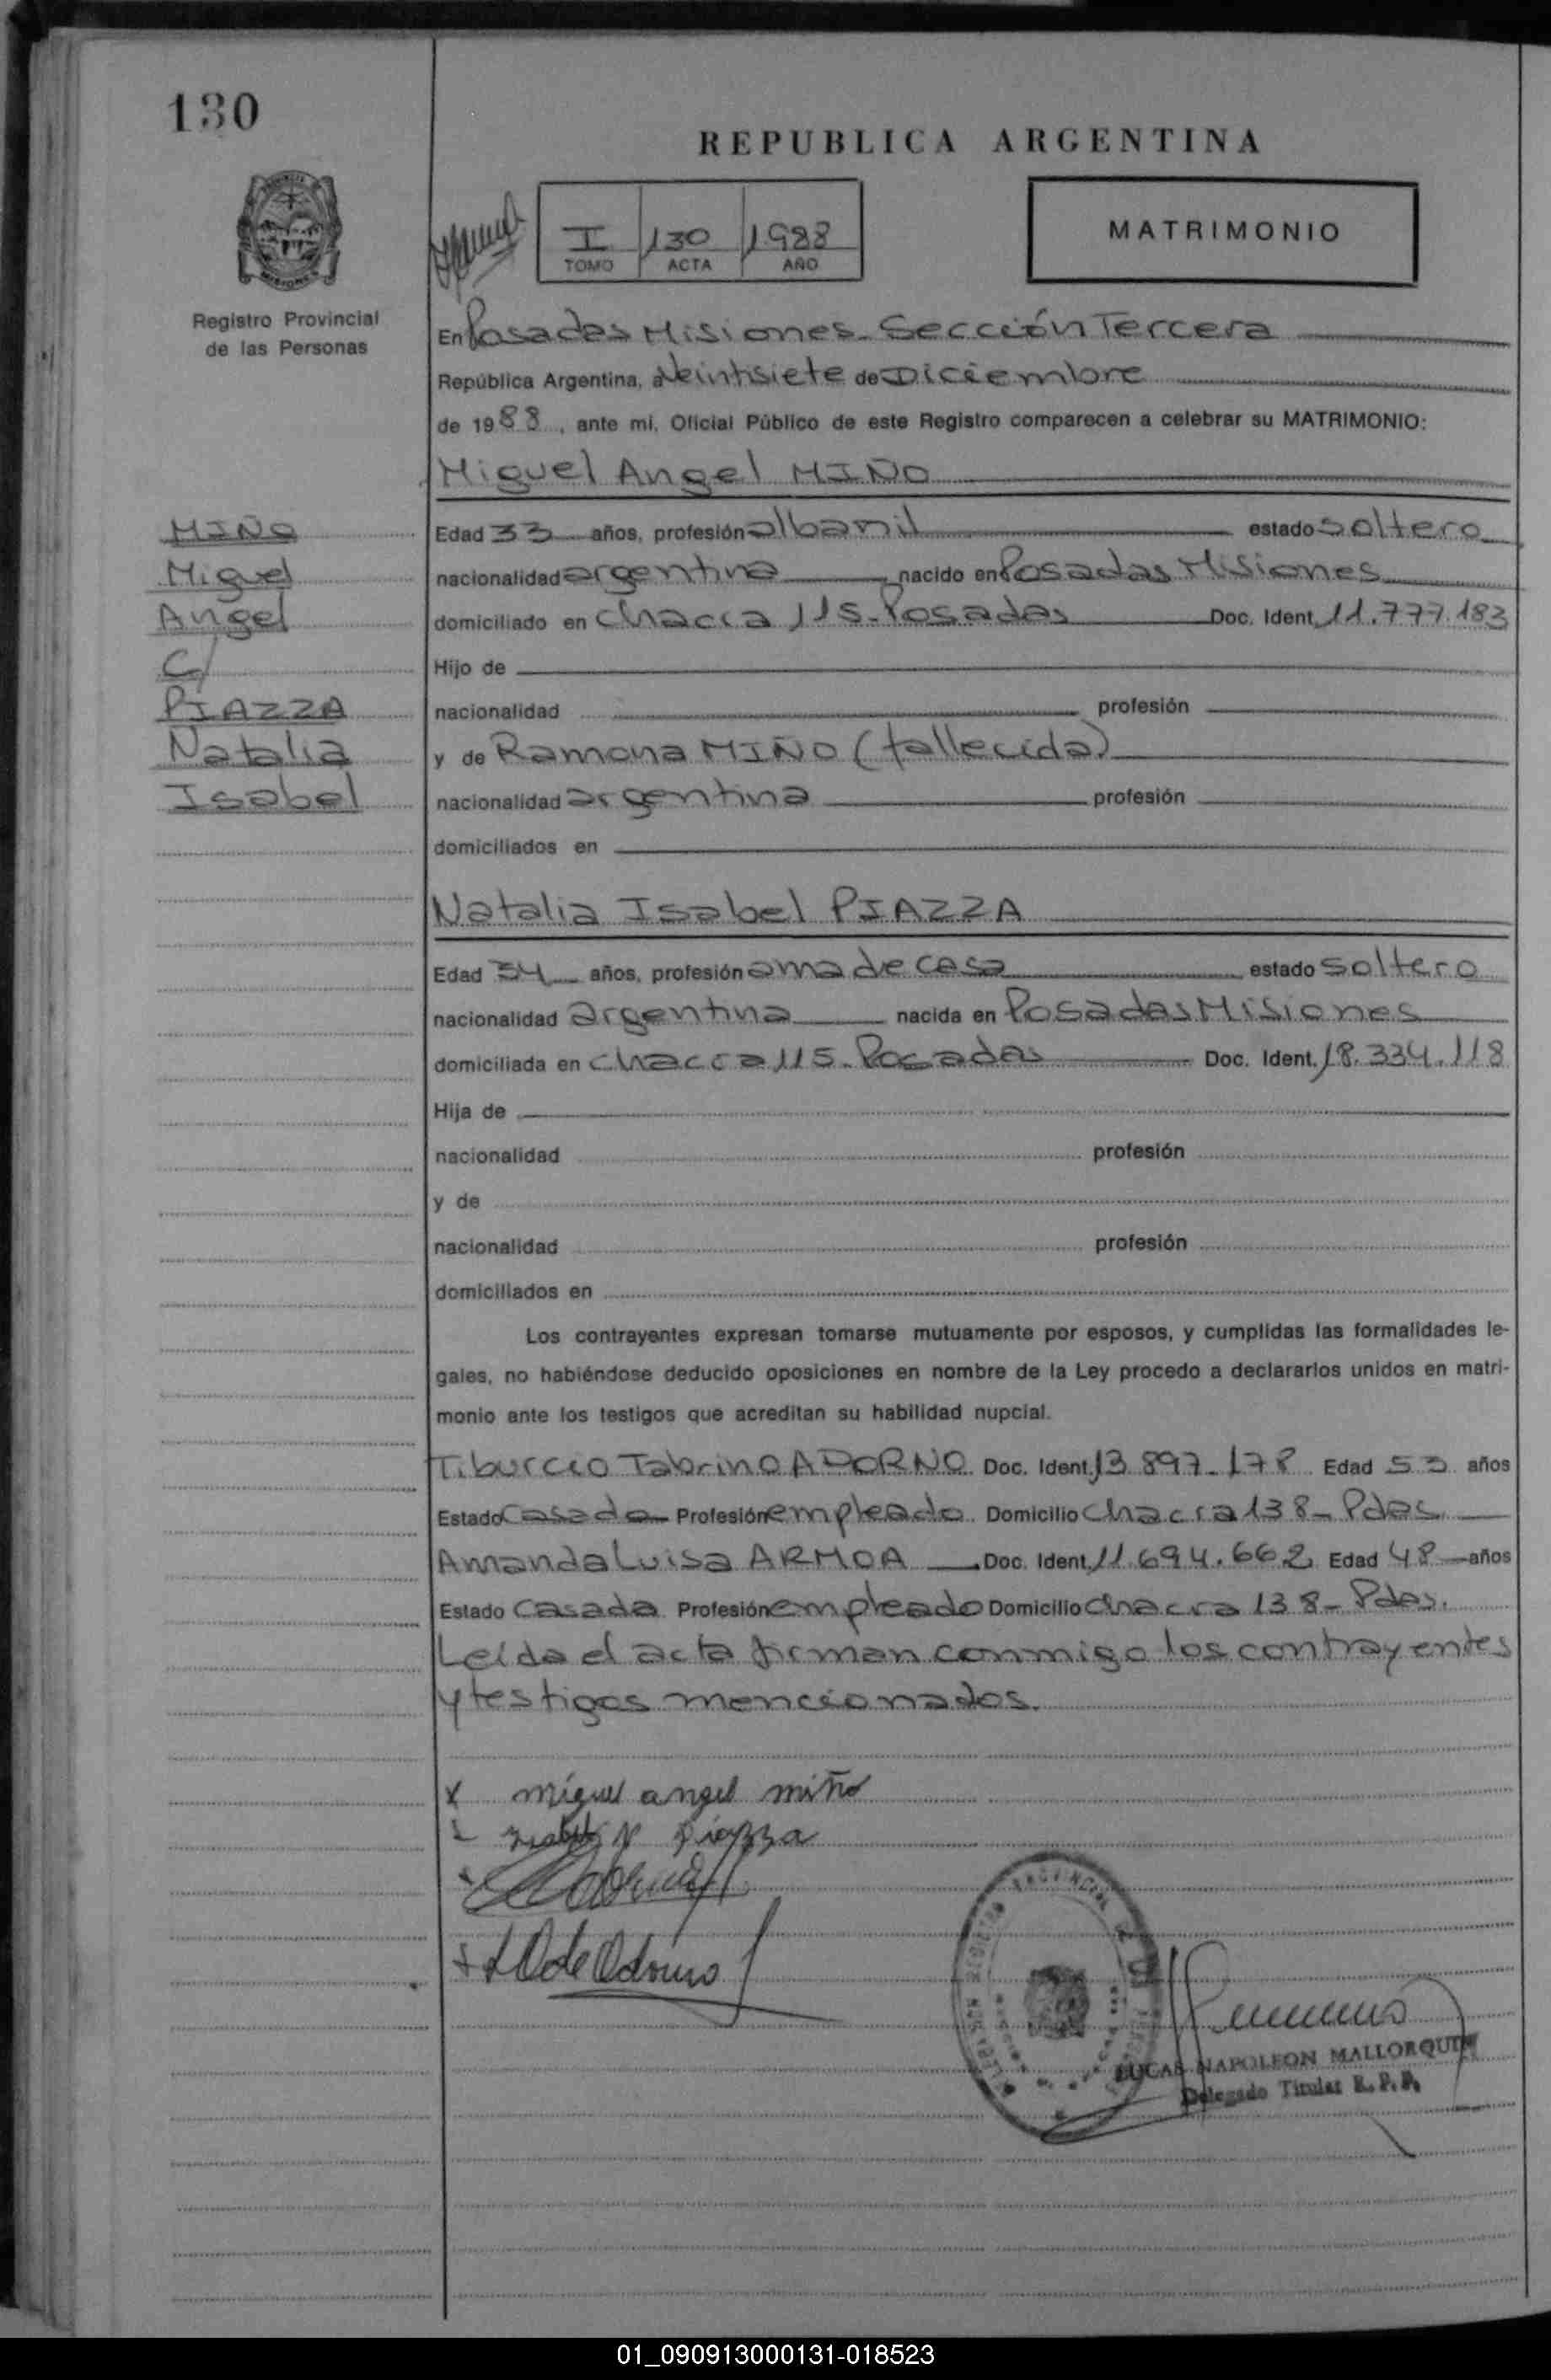 130
REPUBLICA ARGENTINA
I 130 1988
TOMO ACTA AÑO
MATRIMONIO
Registro Provincial
de las Personas
En Posadas Misiones - Sección Tercera
República Argentina, a Veintisiete de Diciembre
de 1988, ante mi, Oficial Público de este Registro comparecen a celebrar su MATRIMONIO:
Miguel Angel MIÑO
MIÑO
Miguel
Angel
C/
PIAZZA
Natalia
Isabel
Edad 33 años, profesión albanil estado soltero
nacionalidad argentina nacido en Posadas Misiones
domiciliado en chacra 115 - Posadas Doc. Ident. 11.777.183
Hijo de
nacionalidad profesión
y de Ramona MIÑO (fallecida)
nacionalidad argentina profesión
domiciliados en
Natalia Isabel PIAZZA
Edad 34 años, profesión ama de casa estado soltero
nacionalidad argentina nacida en Posadas Misiones
domiciliada en chacra 115 - Posadas Doc. Ident. 18.334.118
Hija de
nacionalidad profesión
y de
nacionalidad profesión
domiciliados en
Los contrayentes expresan tomarse mutuamente por esposos, y cumplidas las formalidades le-
gales, no habiéndose deducido oposiciones en nombre de la Ley procedo a declararlos unidos en matri-
monio ante los testigos que acreditan su habilidad nupcial.
Tiburcio Tabrino ADORNO Doc. Ident. 13.897.178 Edad 53 años
Estado Casado Profesión empleado Domicilio chacra 138 - Pdas.
Amanda Luisa ARMOA Doc. Ident. 11.694.662 Edad 48 años
Estado Casada Profesión empleado Domicilio chacra 138 - Pdas.
Leída el acta firman conmigo los contrayentes
y testigos mencionados.
x miguel angel miño
N Piazza
de Adorno
LUCAS NAPOLEON MALLORQUIN
Delegado Titular R. P. P.
01_090913000131-018523